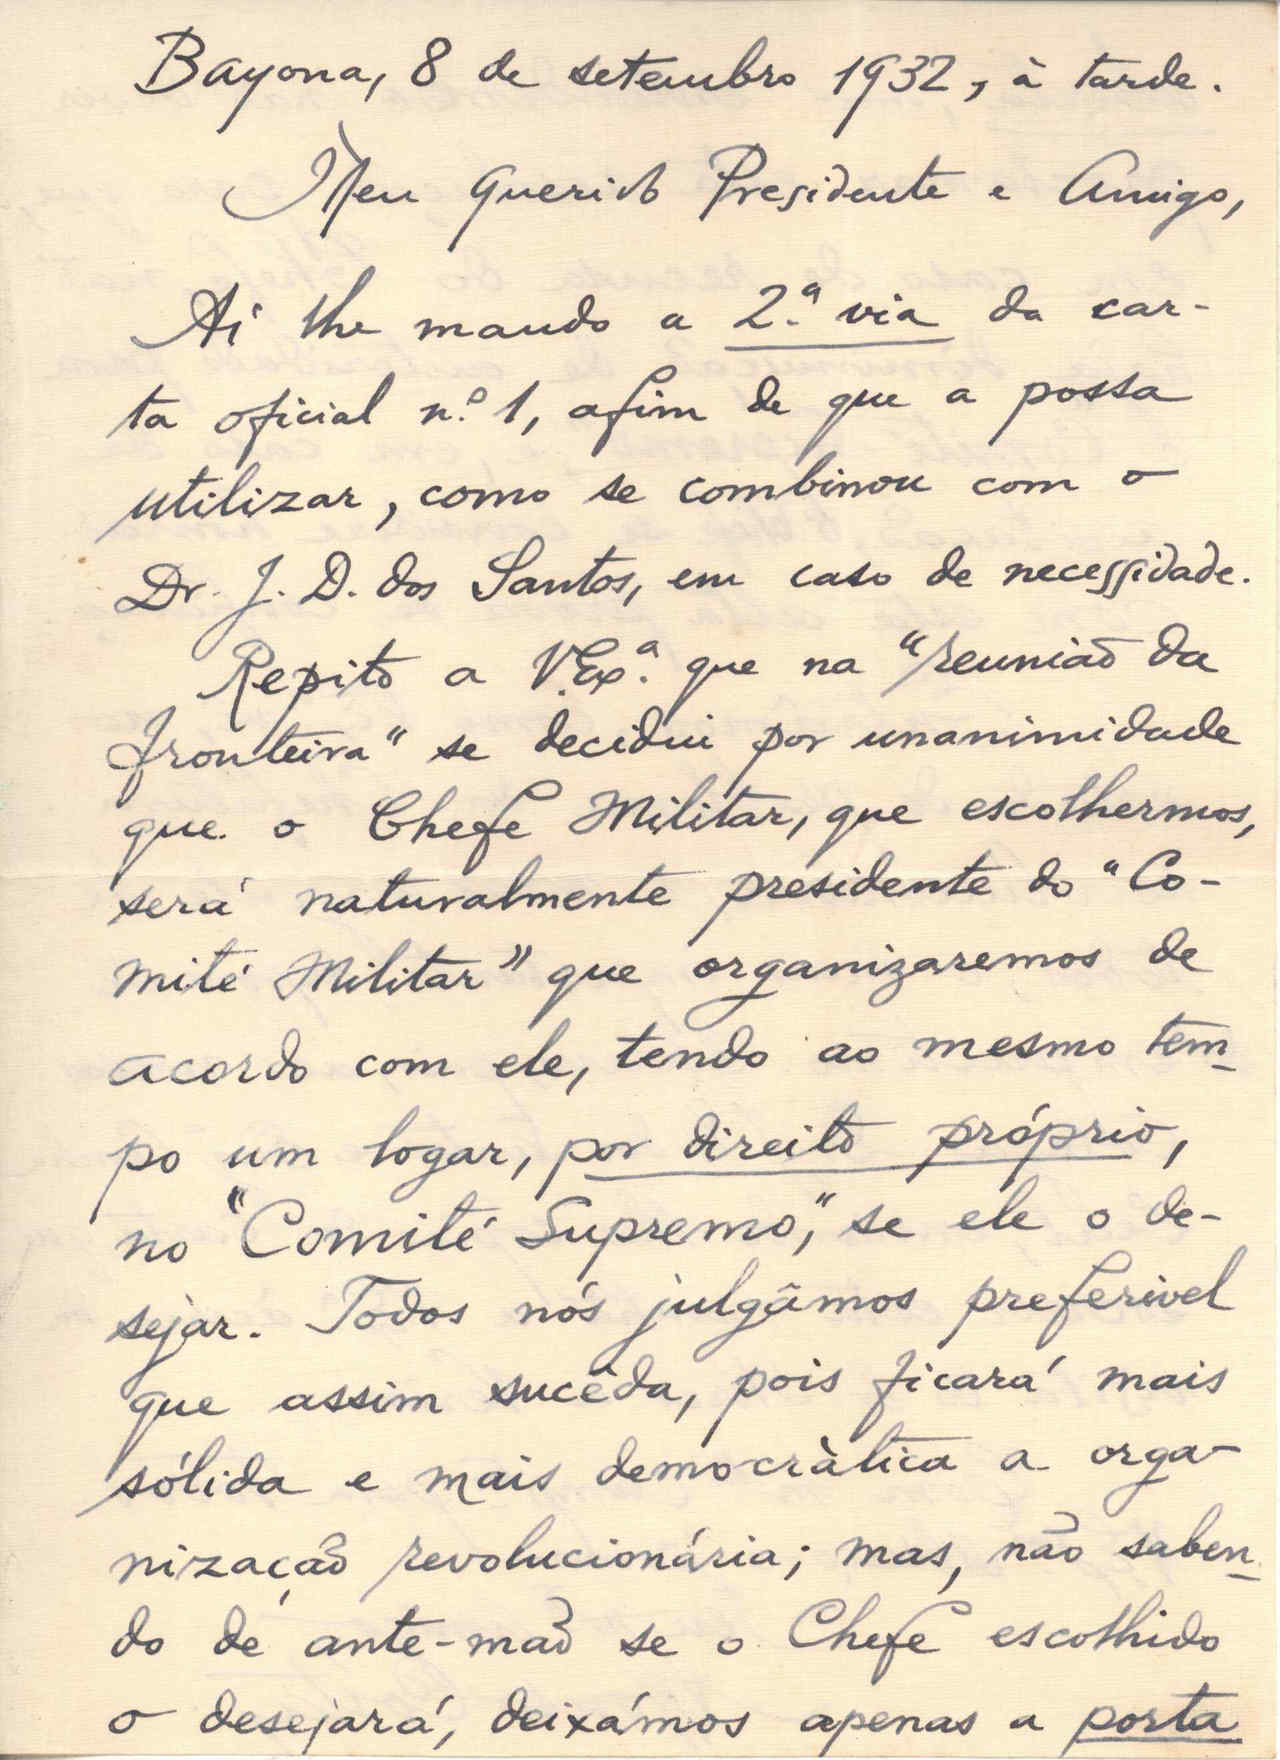 Bayona, 8 de setembro 1932, à tarde.
Meu Querido Presidente e Amigo,
Aí lhe mando a 2.ª via da car-
ta oficial n.º 1, afim de que a possa
utilizar, como se combinou com o
Dr. J. D. dos Santos, em caso de necessidade.
Repito a V. Exª. que na "reunião da
fronteira" se decidiu por unanimidade
que o Chefe Militar, que escolhermos,
será naturalmente presidente do "Co-
mité Militar" que organizaremos de
acordo com ele, tendo ao mesmo tem-
po um logar, por direito próprio,
no "Comité Supremo", se ele o de-
sejar. Todos nós julgâmos preferivel
que assim sucêda, pois ficará mais
sólida e mais democràtica a orga-
nização revolucionária; mas, não saben-
do de ante-mão se o Chefe escolhido
o desejará, deixámos apenas a porta